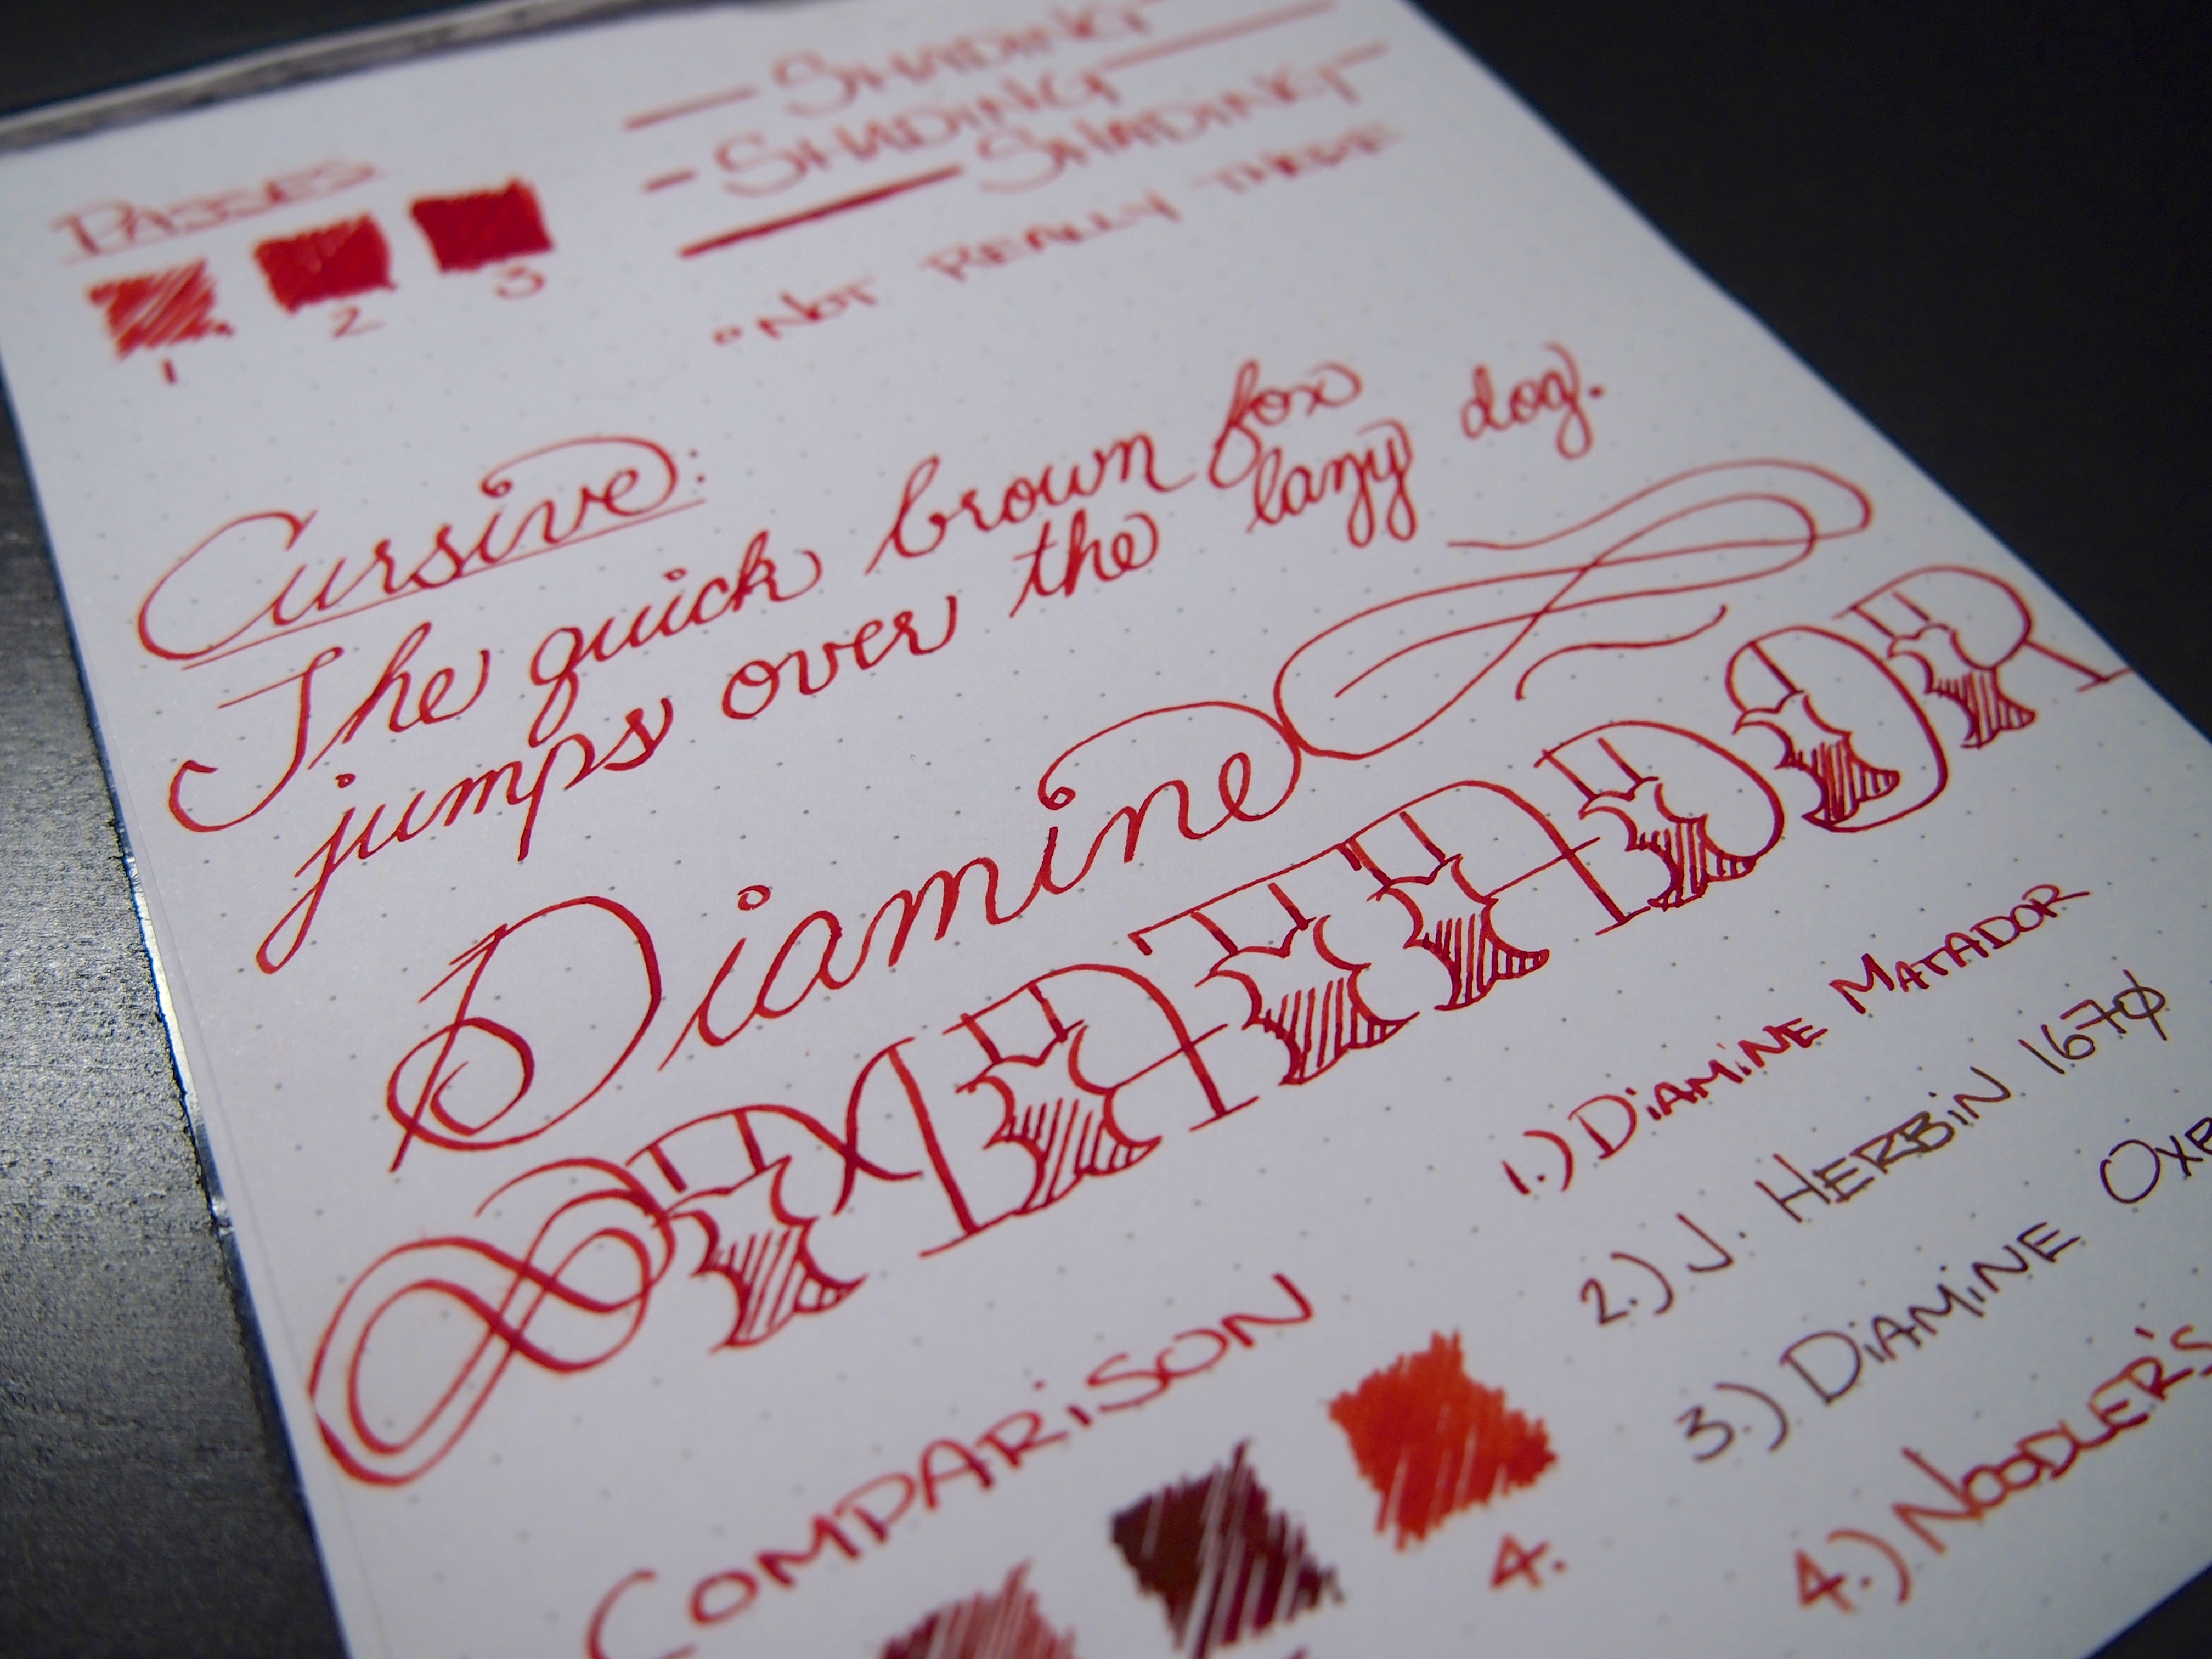 SHADING
SHADING
SHADING
NOT REALLY THERE
PASSES
1 2 3
Cursive:
The quick brown fox
jumps over the lazy dog.
Diamine
MATADOR
COMPARISON
4.
1.) DIAMINE MATADOR
2.) J. HERBIN 1670
3.) DIAMINE
4.) NOODLER'S